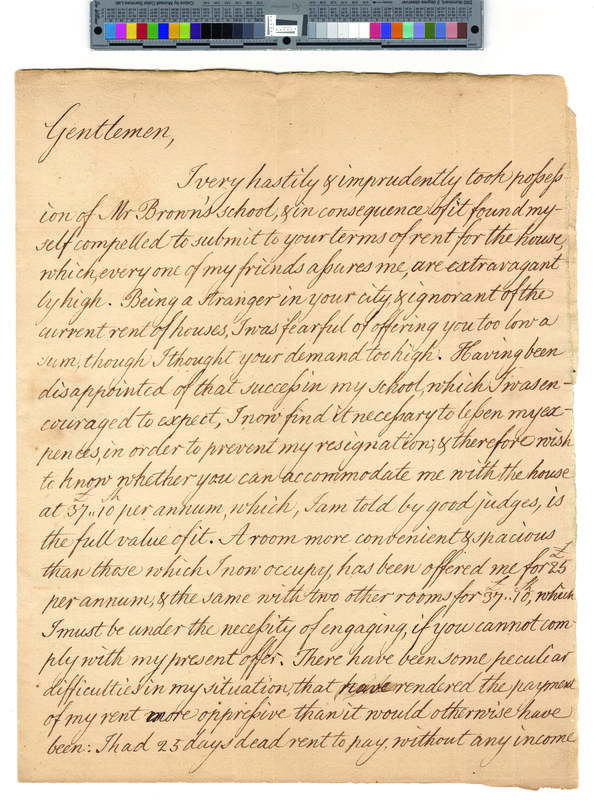 Gentlemen,
I very hastily & imprudently took possess
ion of Mr Brown's school, & in consequence of it found my-
self compelled to submit to your terms of rent for the house,
which, every one of my friends assures me, are extravagant
ly high. Being a stranger in your city & ignorant of the
current rent of houses, I was fearful of offering you too low a
sum, though I thought your demand too high. Having been
disappointed of that success in my school, which I was en-
couraged to expect, I now find it necessary to lessen my ex-
pences, in order to prevent my resignation; & therefore wish
to know whether you can accommodate me with the house
at £37..10 per annum, which, I am told by good judges, is
the full value of it. A room more convenient & spacious
than those which I now occupy, has been offered me for £25
per annum, & the same with two other rooms for £37..10, which
I must be under the necessity of engaging, if you cannot com
ply with my present offer. There have been some peculiar
difficulties in my situation, that have rendered the payment
of my rent more oppressive than it would otherwise have
been: I had 25 days dead rent to pay, without any income